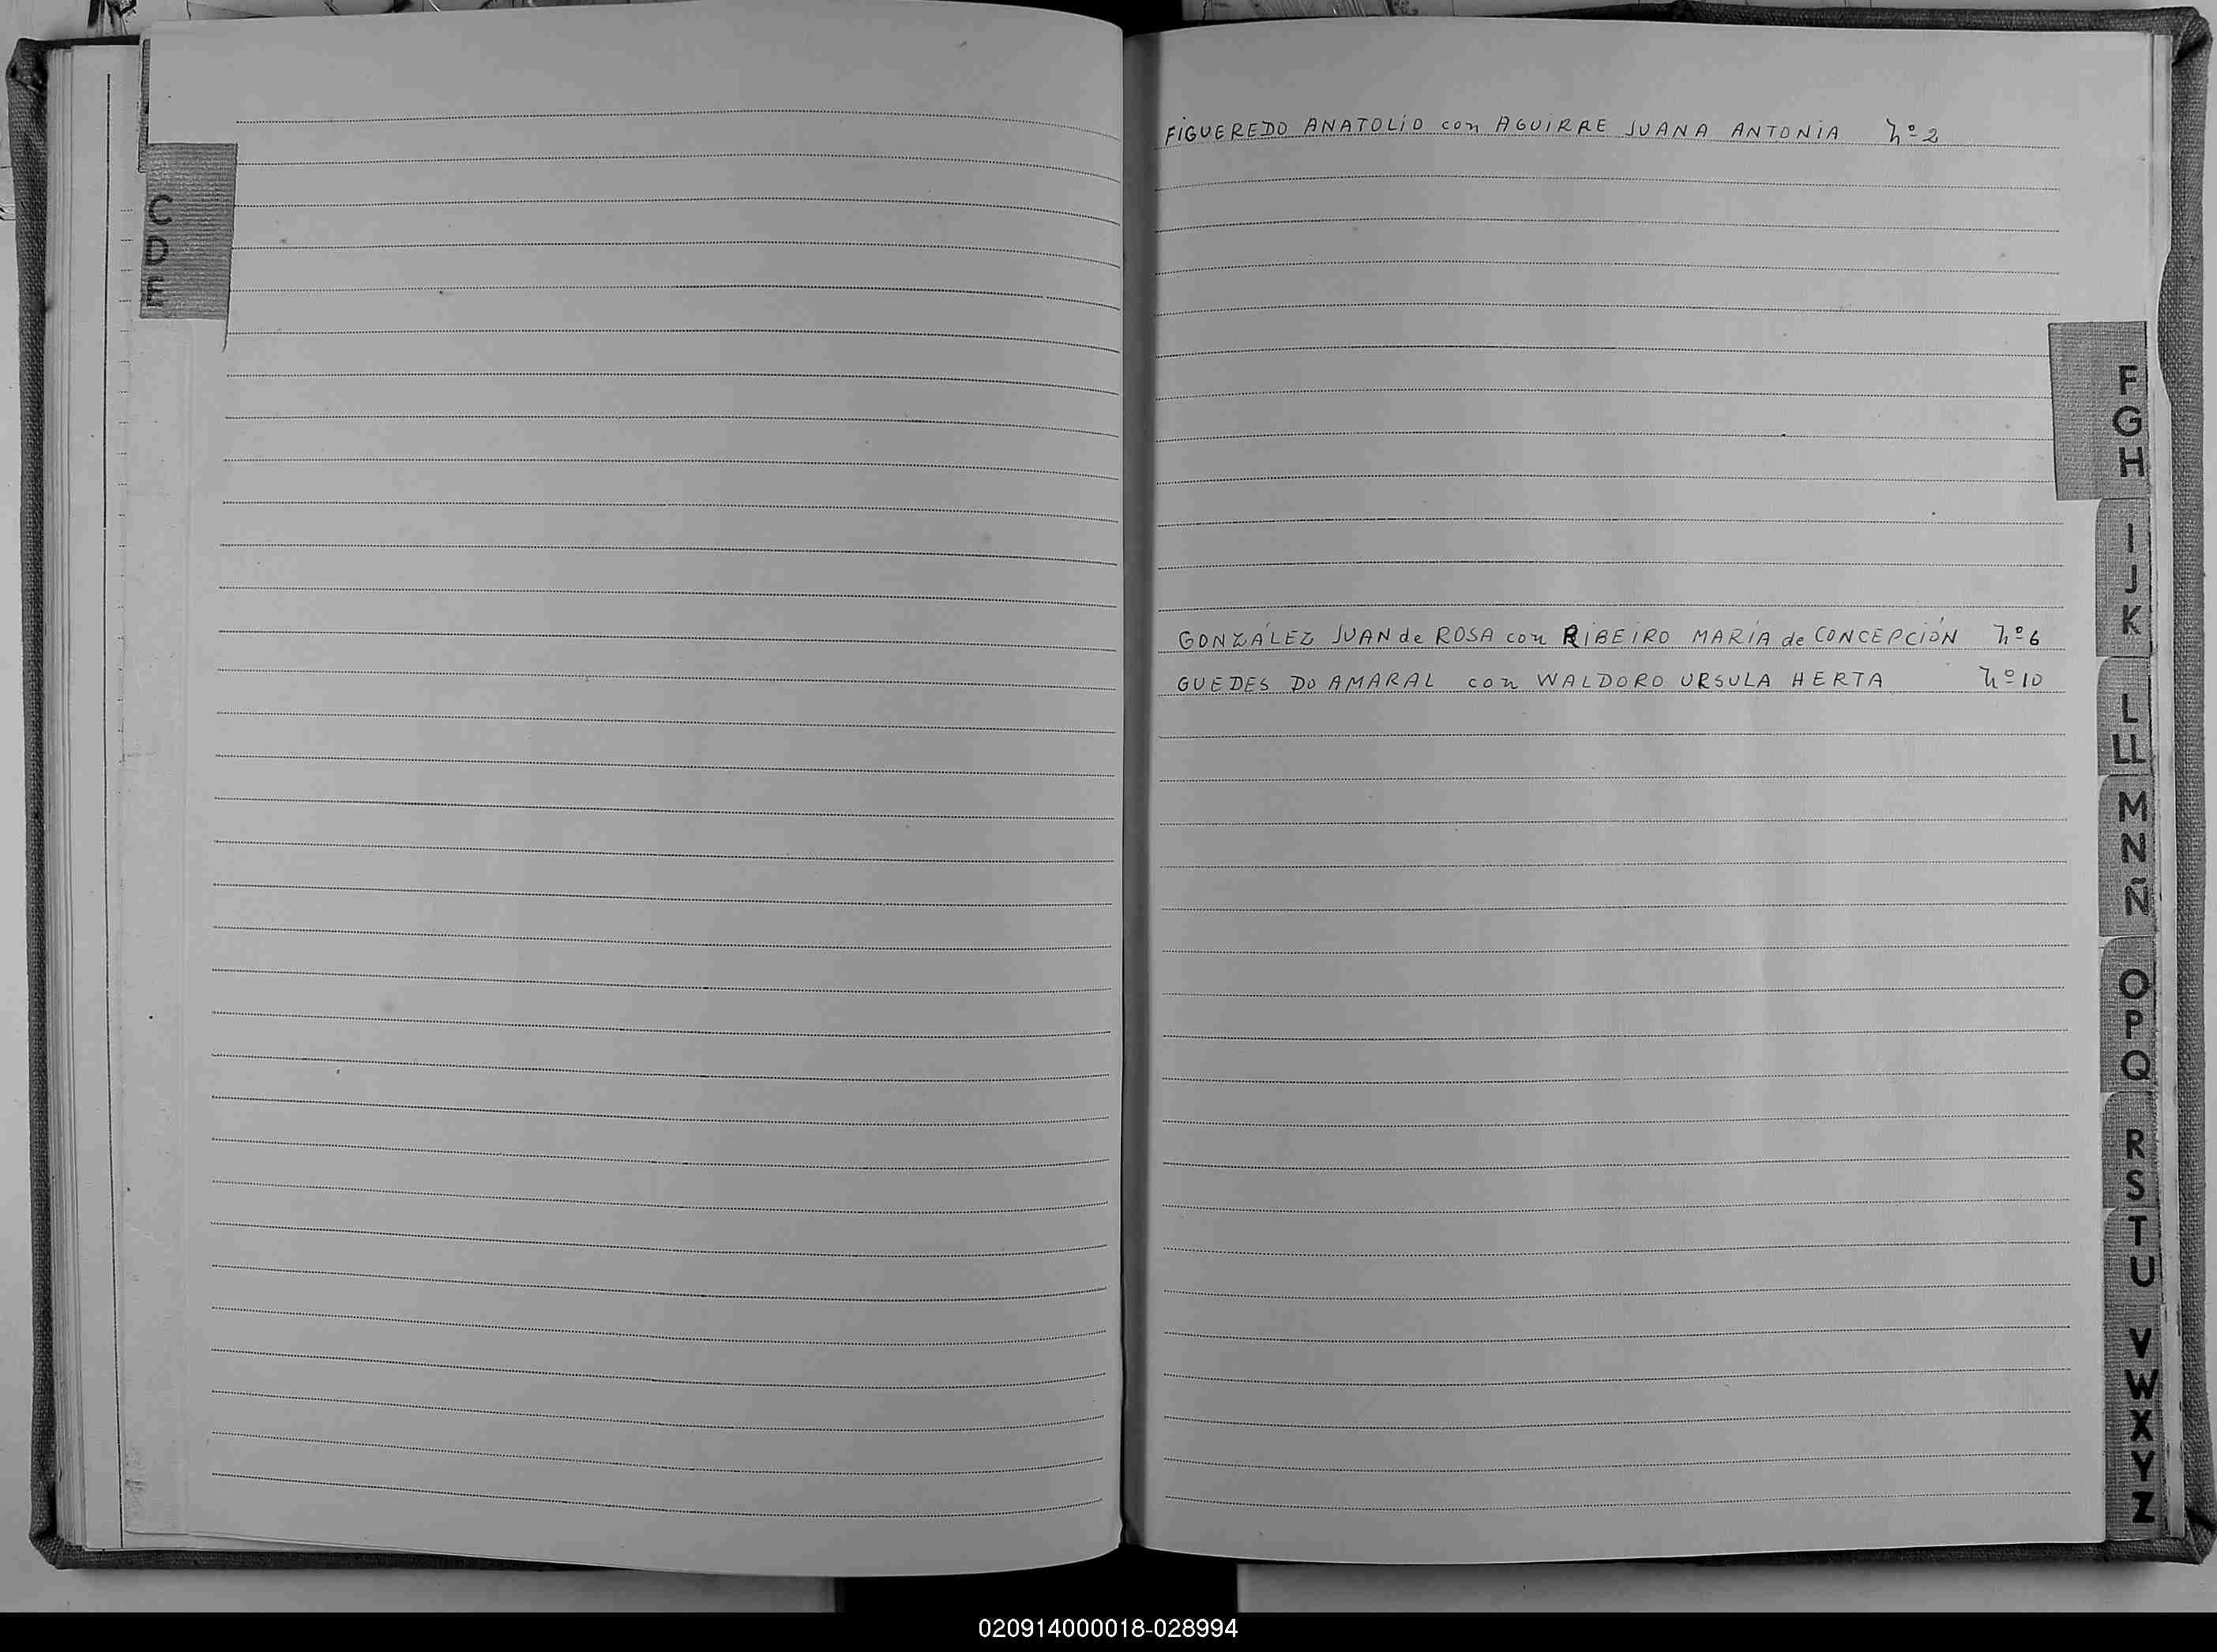 C
D
E
FIGUEREDO ANATOLIO con AGUIRRE JUANA ANTONIA Nº 2
F
G
H
I
J
K
GONZÁLEZ JUAN de ROSA con RIBEIRO MARÍA de CONCEPCIÓN Nº 6
GUEDES DO AMARAL con WALDORO URSULA HERTA Nº 10
L
LL
M
N
Ñ
O
P
Q
R
S
T
U
V
W
X
Y
Z
020914000018-028994